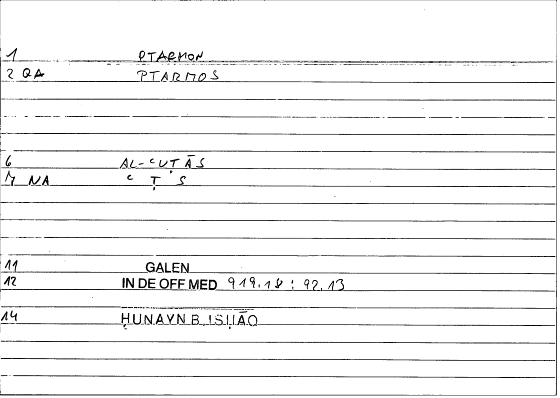 1 PTARMON
2 QA PTARMOS
6 AL-ʿUṬĀS
7 NA ʿ Ṭ S
11 GALEN
12 IN DE OFF MED 919.18 : 92.13
14 ḤUNAYN B. ISḤĀQ